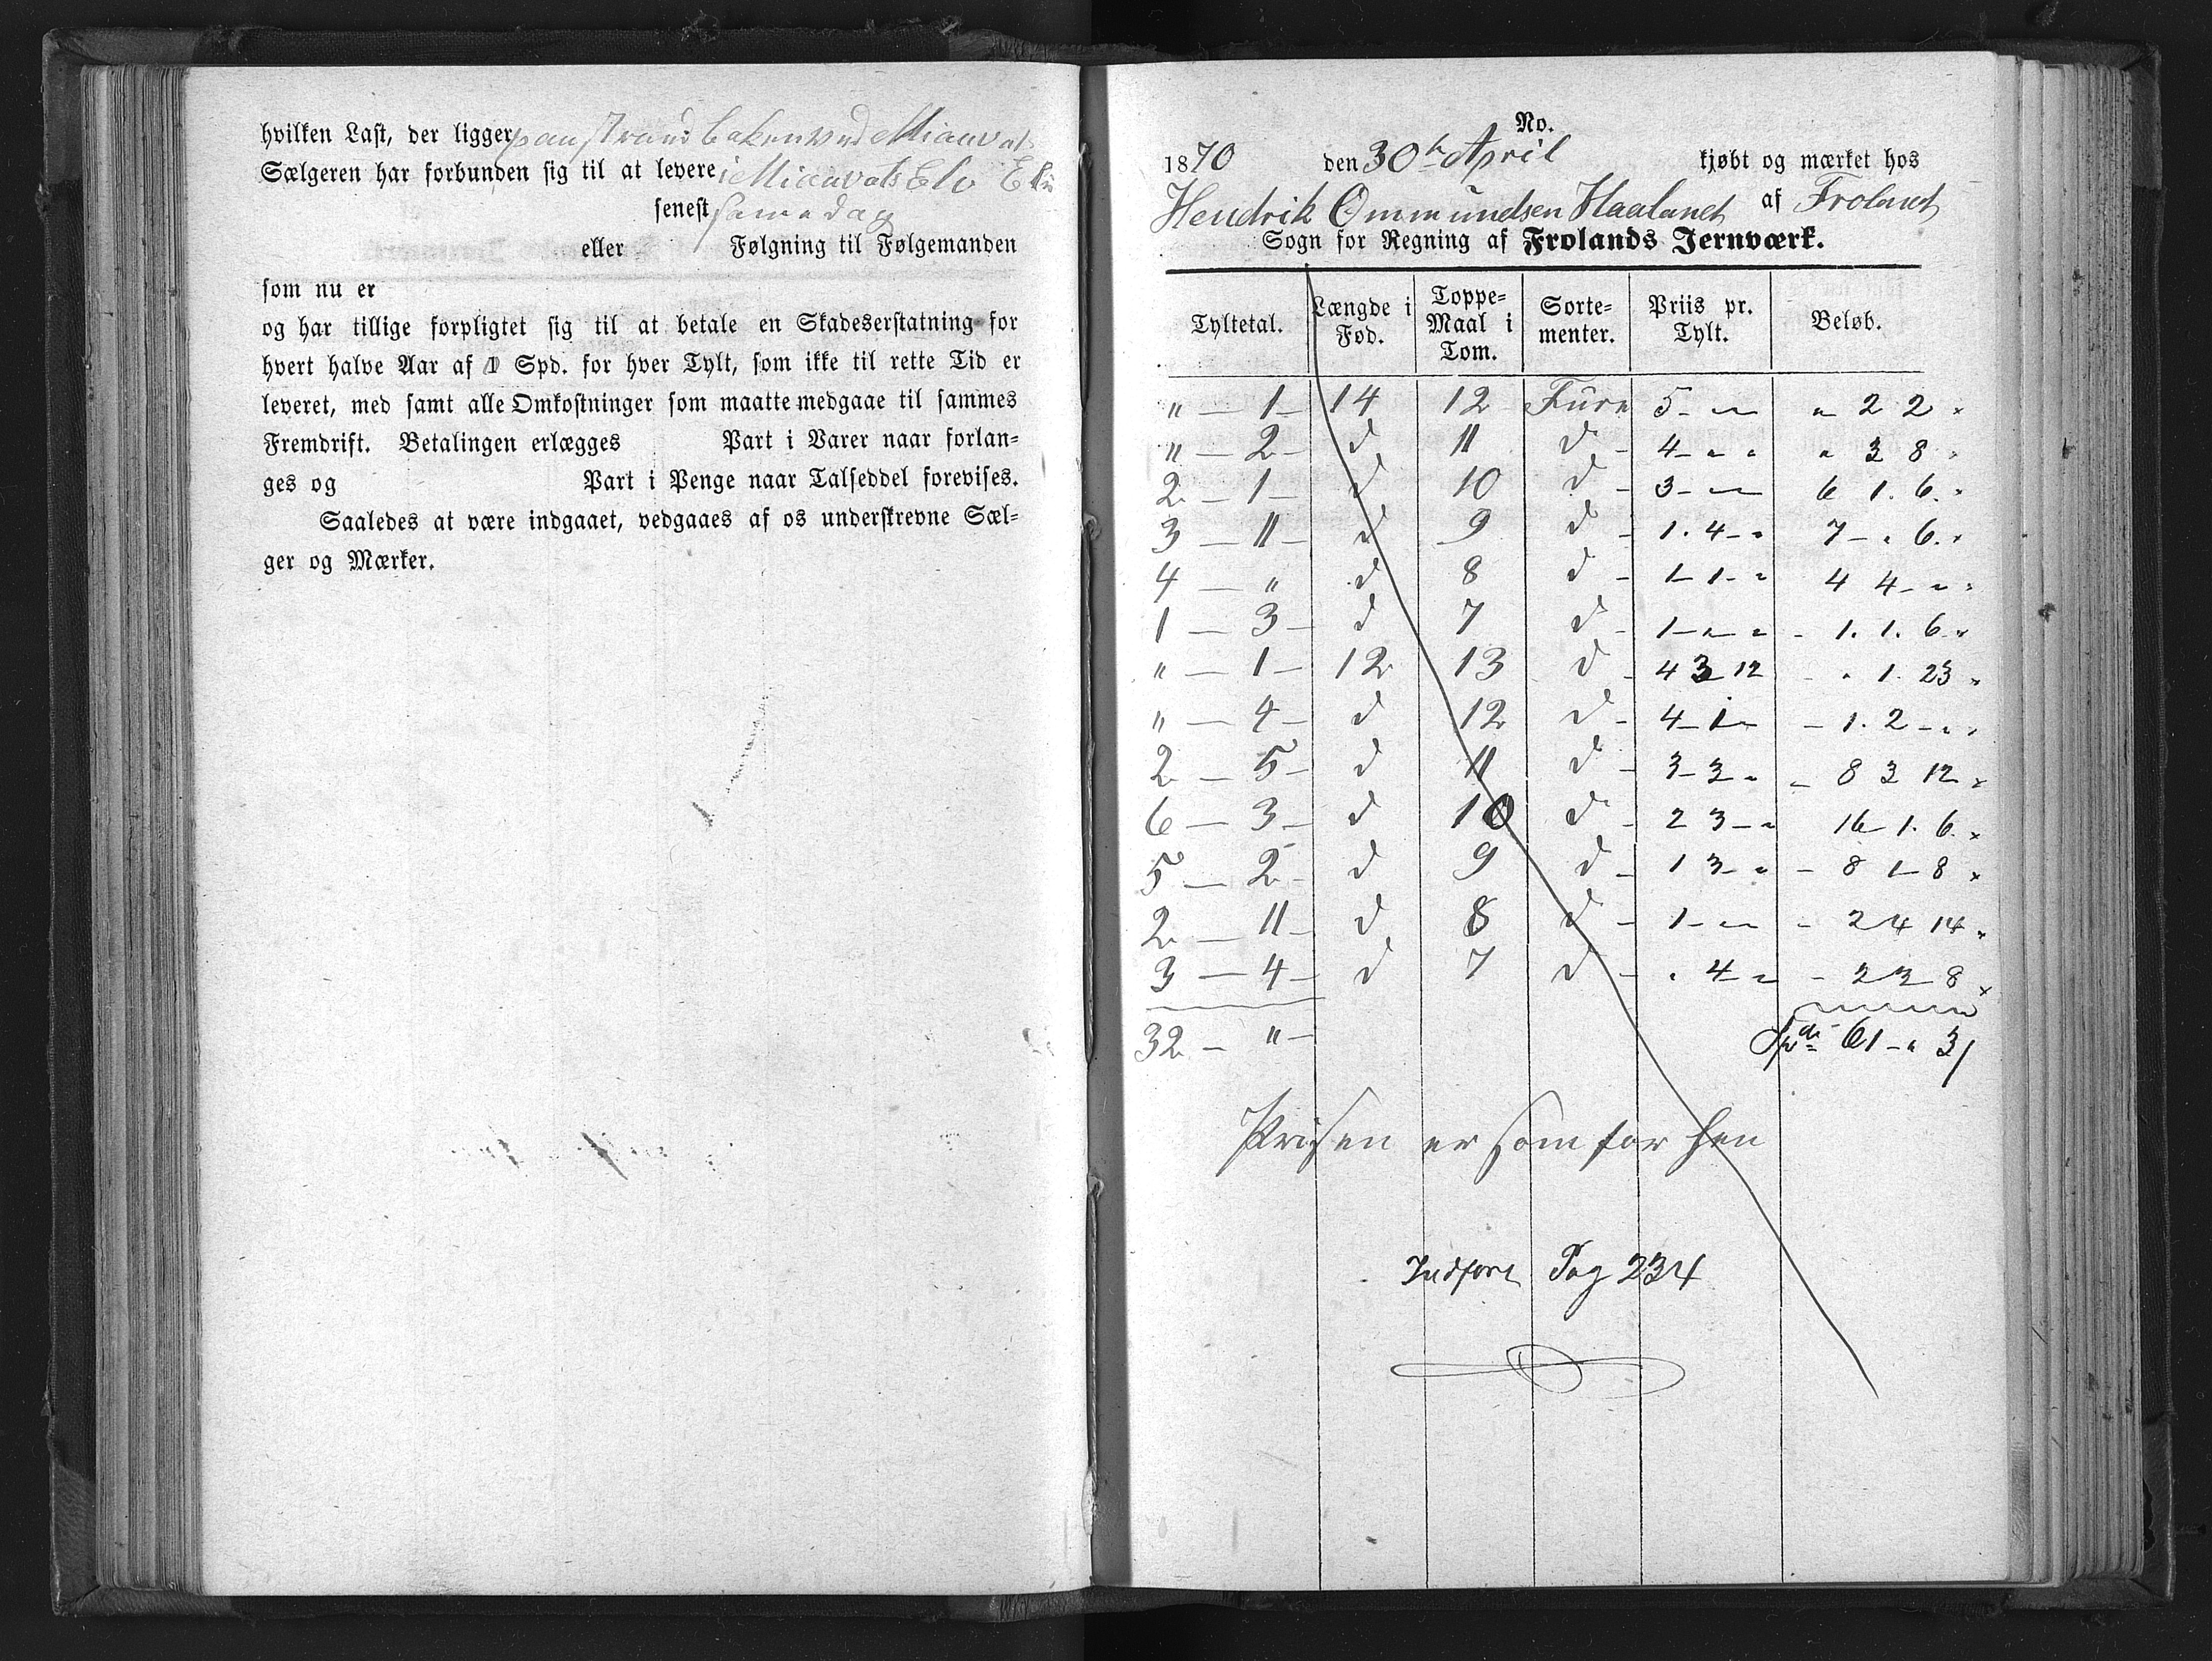 hvilken Last, der ligger paa Strandbaken ved Miauvat
Sælgeren har forbunden sig til at levere i Miauvats Elv
senest sama dag
eller Følgning til Følgemanden
som nu er
og har tillige forpligtet sig til at betale en Skadeserstatning for
hvert halve Aar af 1 Spd. for hver Tylt, som ikke til rette Tid er
leveret, med samt alle Omkostninger som maatte medgaae til sammes
Fremdrift. Betalingen erlægges Part i Varer naar forlan=
ges og Part i Penge naar Talseddel forevises.
Saaledes at være indgaaet, vedgaaes af os underskrevne Sæl=
ger og Mærker.
No.
1870 den 30te April kjøbt og mærket hos
Hendrik Ommundsen Haaland af Froland
Sogn for Regning af Frolands Jernværk.
Tyltetal. Længde i Fod. Toppe=Maal i Tom. Sorte=menter. Priis pr. Tylt. Beløb.
" — 1 — 14 12 Furu 5 - " - " 2 2 "
" — 2 — d 11 d - 4 - " " " 3 8 "
2 — 1 — d 10 d - 3 - " - 6 1. 6. "
3 — 11 — d 9 d - 1. 4 - " 7 - " 6. "
4 — " d 8 d - 1 - 1 - " 4 4 - " "
1 — 3 — d 7 d - 1 - " - " - 1. 1. 6. "
" — 1 — 12 13 d - 4 3 12 - " 1. 23 "
" — 4 — d 12 d - 4 - 1 - - 1. 2 - " "
2 — 5 — d 11 d - 3 - 3 - " - 8 3 12 "
6 — 3 — d 10 d - 2 3 - " 16 - 1. 6. "
5 — 2 — d 9 d - 1 3 - " - 8 1 - 8 "
2 — 11 — d 8 d - 1 - " - - 2 4 14 "
3 — 4 — d 7 d - " 4 - " - 2 3 8 "
32 — " — Spd. 61 - " 3/
Prisen er som for hen
Indført Pag 234